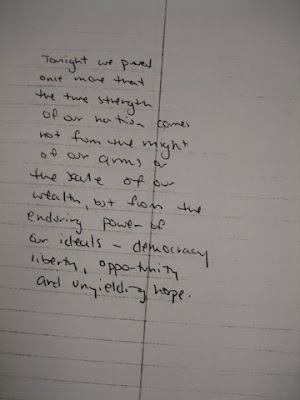 Tonight we proved
once more that
the true strength
of our nation comes
not from the might
of our arms or
the scale of our
wealth, but from the
enduring power of
our ideals - democracy
liberty, opportunity
and unyielding hope.